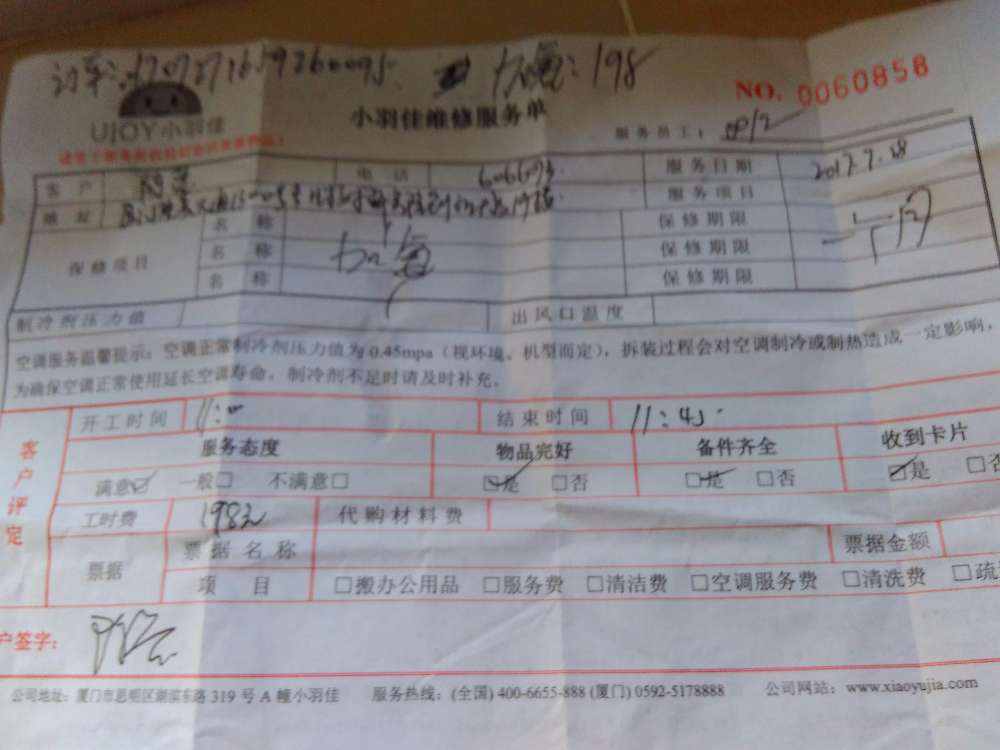 加氟:198
NO. 0060858
UJOY小羽佳
小羽佳维修服务单
服务员工:
客户 电话 606673 服务日期 2017.7.28
地址 服务项目
保修项目 名称 加氟 保修期限 一个月
名称 保修期限
名称 保修期限
制冷剂压力值 出风口温度
空调服务温馨提示:空调正常制冷剂压力值为0.45mpa(视环境、机型而定),拆装过程会对空调制冷或制热造成一定影响,
为确保空调正常使用延长空调寿命,制冷剂不足时请及时补充。
客户评定
开工时间 11:00 结束时间 11:45
服务态度 物品完好 备件齐全 收到卡片
满意☑ 一般□ 不满意□ ☑是 □否 ☑是 □否 ☑是 □否
工时费 198元 代购材料费
票据 票据名称 票据金额
项目 □搬办公用品 □服务费 □清洁费 □空调服务费 □清洗费 □疏
户签字:
公司地址:厦门市思明区湖滨东路319号A幢小羽佳 服务热线:(全国)400-6655-888(厦门)0592-5178888 公司网站:www.xiaoyujia.com